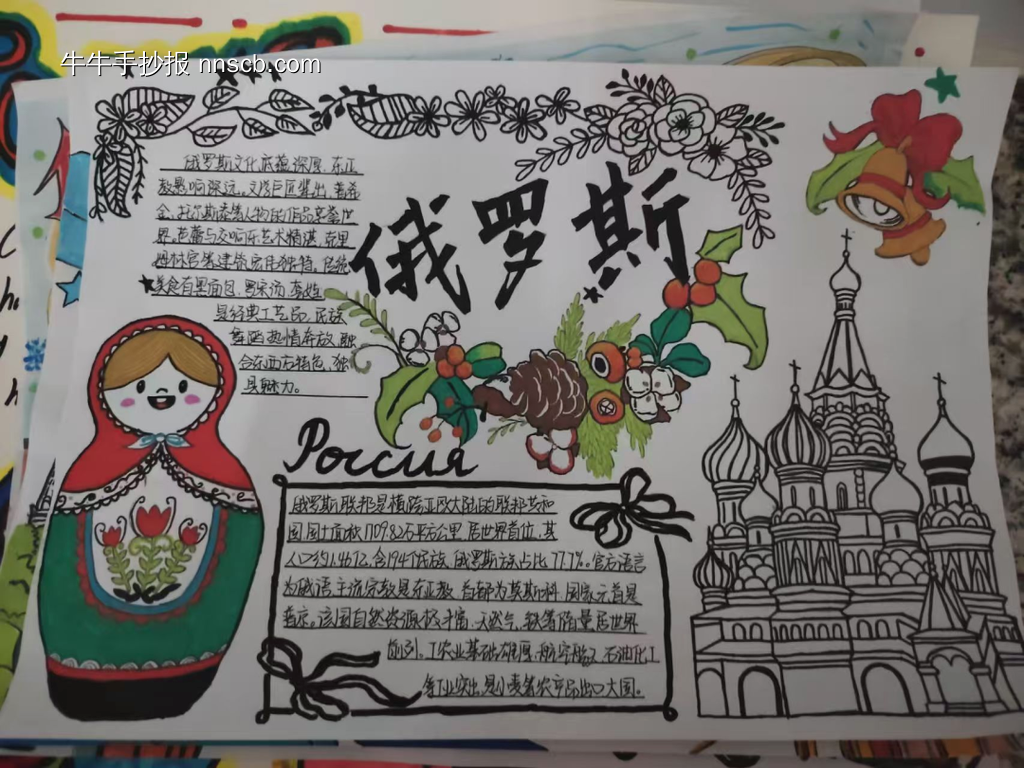 牛牛手抄报 nnscb.com
俄罗斯文化底蕴深厚,东正
教影响深远。文学巨匠辈出,普希
金、托尔斯泰等人物的作品享誉世
界。芭蕾与交响乐艺术精湛,克里
姆林宫等建筑宏伟独特。传统
美食有黑面包、罗宋汤,套娃
是经典工艺品,民族
舞蹈热情奔放,融
合东西方特色,独
具魅力。
俄罗斯
Россия
俄罗斯联邦是横跨亚欧大陆的联邦共和
国,国土面积1709.82万平方公里,居世界首位,其
人口约1.46亿,含194个民族,俄罗斯族占比77.7%。官方语言
为俄语,主流宗教是东正教,首都为莫斯科,国家元首是
普京。该国自然资源极丰富,天然气、铁等储量居世界
前列。工农业基础雄厚,航空航天、石油化工
等工业突出,是小麦等农产品出口大国。